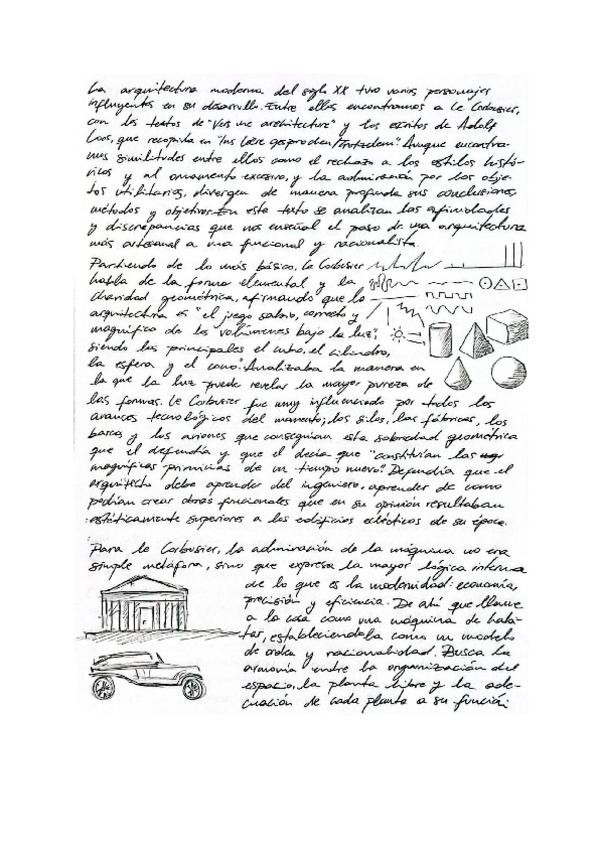 La arquitectura moderna del siglo XX tuvo varios personajes
influyentes en su desarrollo. Entre ellos encontramos a Le Corbusier,
con los textos de "Vers une architecture" y los escritos de Adolf
Loos, que recopila en "Ins Leere gesprochen/Trotzdem". Aunque encontra-
mos similitudes entre ellos como el rechazo a los estilos histó-
ricos y al ornamento excesivo, y la admiración por los obje-
tos utilitarios, divergen de manera profunda sus conclusiones,
métodos y objetivos. En este texto se analizan las afinidades
y discrepancias que nos enseñan el paso de una arquitectura
más artesanal a una funcional y racionalista.
Partiendo de lo más básico, Le Corbusier
habla de la forma elemental y la
claridad geométrica, afirmando que la
arquitectura es "el juego sabio, correcto y
magnífico de los volúmenes bajo la luz",
siendo los principales el cubo, el cilindro,
la esfera y el cono". Analizaba la manera en
la que la luz puede revelar la mayor pureza de
las formas. Le Corbusier fue muy influenciado por todos los
avances tecnológicos del momento; los silos, las fábricas, los
barcos y los aviones que conseguían esta sobriedad geométrica
que el defendía y que el decía que "constituían las
magníficas primicias de un tiempo nuevo". Defendía que el
arquitecto debe aprender del ingeniero, aprender de como
podían crear obras funcionales que en su opinión resultaban
estéticamente superiores a los edificios eclécticos de su época.
Para le Corbusier, la admiración de la máquina no era
simple metáfora, sino que expresa la mayor lógica interna
de lo que es la modernidad: economía,
precisión y eficiencia. De ahí que llame
a la casa como una máquina de habi-
tar, estableciendola como un modelo
de orden y racionalidad. Busca la
armonía entre la organización del
espacio, la planta libre y la ade-
cuación de cada planta a su función: